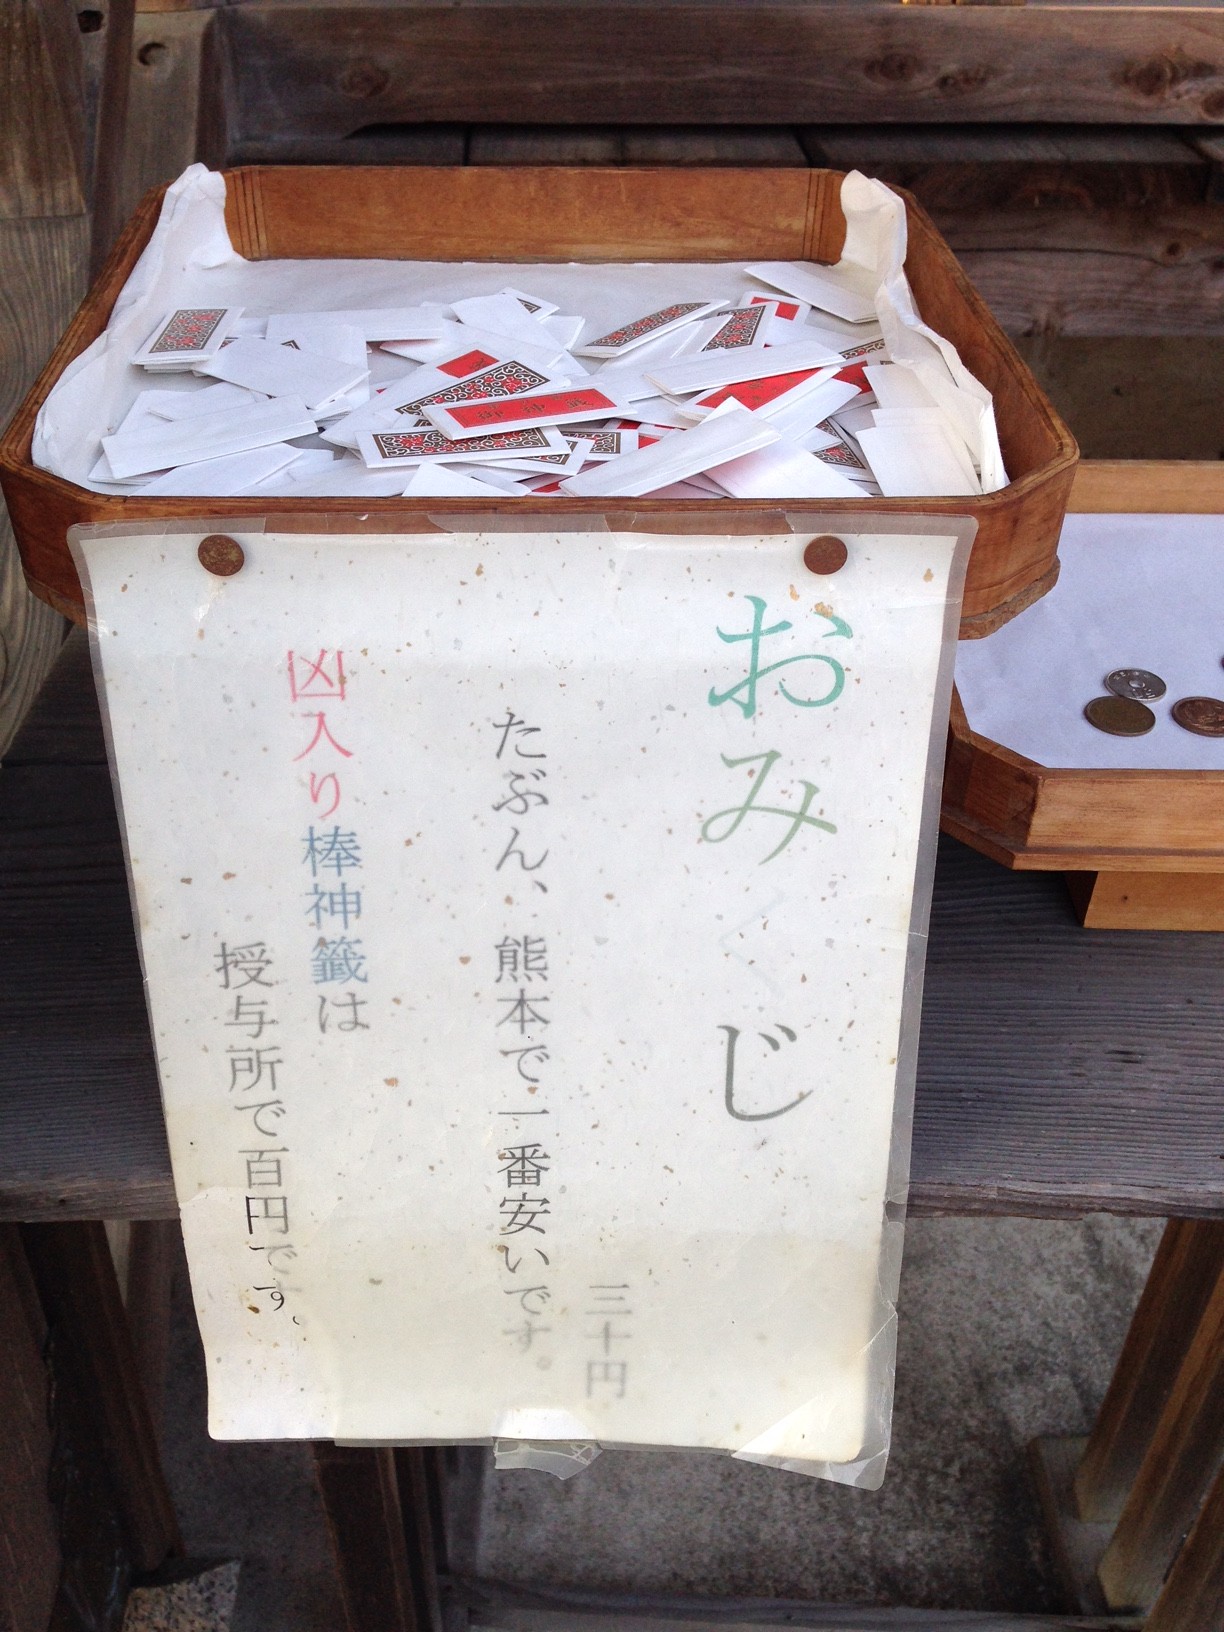 おみくじ
三十円
たぶん、熊本で一番安いです。
凶入り棒神籤は
授与所で百円です。